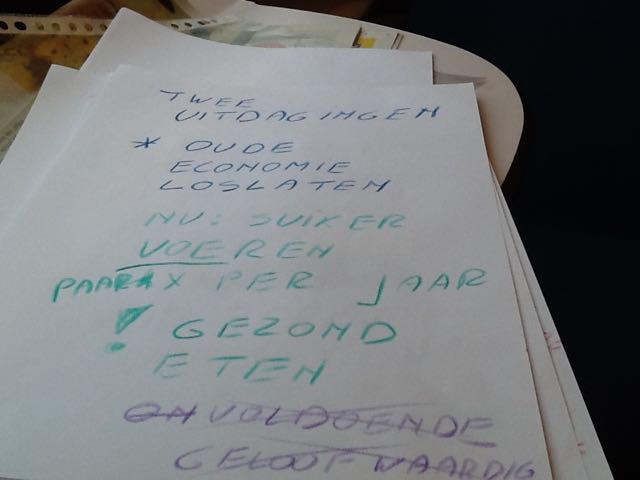 TWEE
UITDAGINGEN
* OUDE
ECONOMIE
LOSLATEN
NU: SUIKER
VOEREN
PAAR X PER JAAR
! GEZOND
ETEN
ONVOLDOENDE
GELOOFWAARDIG